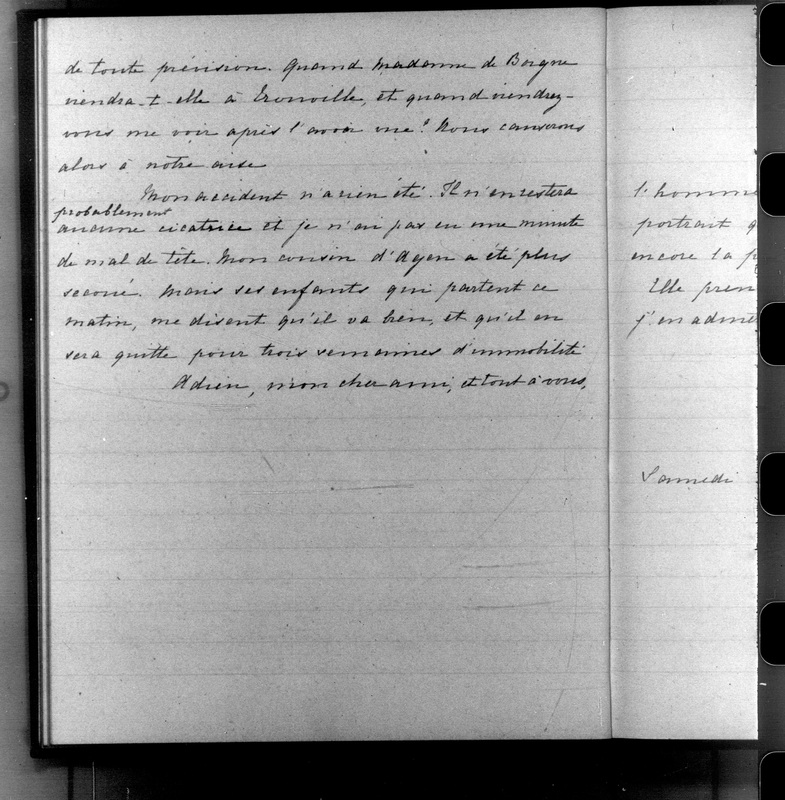 de toute prévision. Quand Madame de Boigne
viendra-t-elle à Trouville, et quand viendrez-
vous me voir après l'avoir vue? Nous causerons
alors à notre aise
Mon accident n'a rien été. Il n'en restera
probablement
aucune cicatrice et je n'ai pas eu une minute
de mal de tête. Mon cousin d'Ayen a été plus
secoué. Mais ses enfants qui partent ce
matin, me disent qu'il va bien, et qu'il en
sera quitte pour trois semaines d'immobilité
Adieu, mon cher ami, et tout à vous,
l'homme
portrait q
encore la p
Elle pren
j'en admi
Samedi